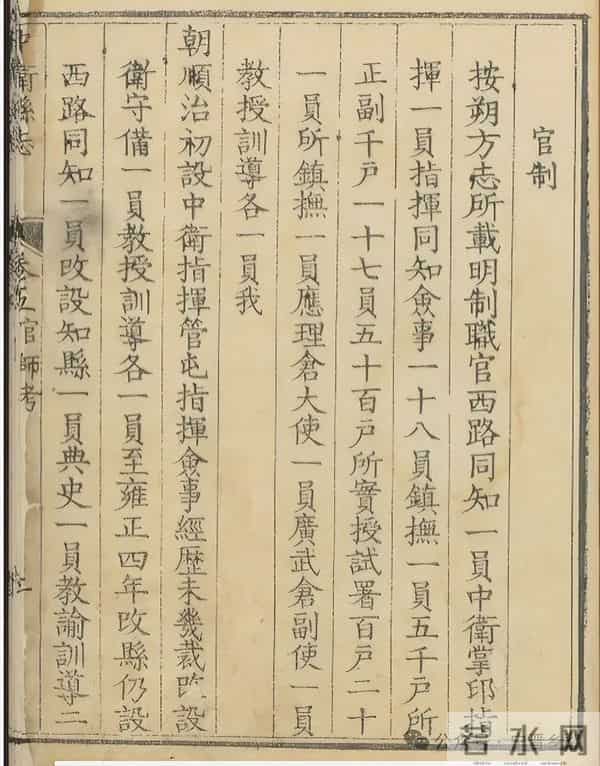 官制
按朔方志所載明制職官西路同知一員中衛掌印指
揮一員指揮同知僉事一十八員鎮撫一員五千戶所
正副千戶一十七員五十百戶所實授試署百戶二十
一員所鎮撫一員應理倉大使一員廣武倉副使一員
教授訓導各一員我
朝順治初設中衛指揮管屯指揮僉事經歷未幾裁改設
衛守備一員教授訓導各一員至雍正四年改縣仍設
西路同知一員改設知縣一員典史一員教諭訓導二
中衛縣志
卷五官師考
公众号
若水网